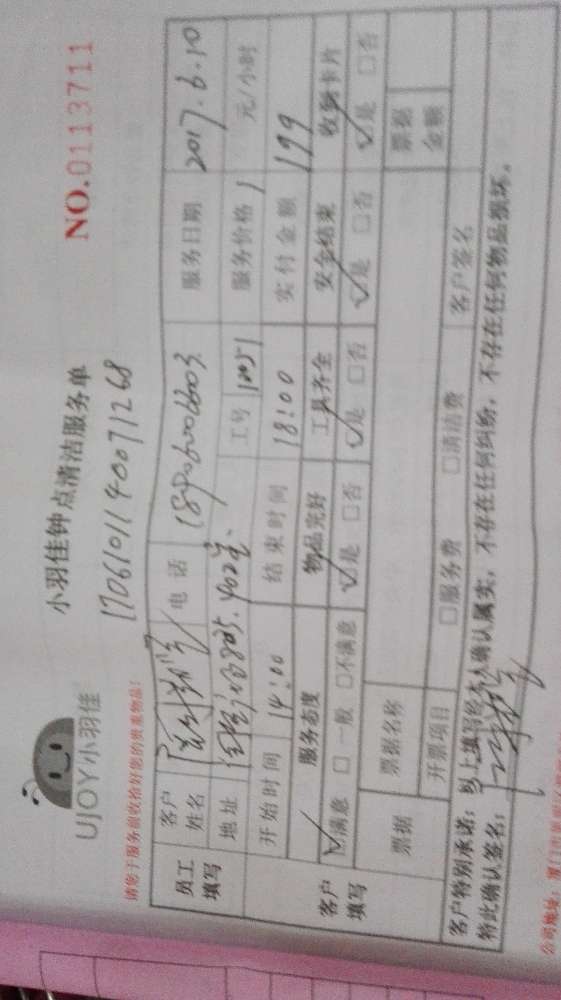 UJOY小羽佳
小羽佳钟点清洁服务单
NO.0113711
1706101140071268
请您于服务前收拾好您的贵重物品！
员工填写
客户姓名
电话
服务日期 2017.6.10
地址
工号 12051
服务价格 / 元/小时
开始时间 14:00 结束时间 18:00 实付金额 199
客户填写
服务态度 物品完好 工具齐全 安全结束 收到卡片
☑满意 □一般 □不满意 ☑是 □否 ☑是 □否 ☑是 □否 ☑是 □否
票据 票据名称 票据金额
开票项目 □服务费 □清洁费 客户签名
客户特别承诺：以上填写经本人确认属实，不存在任何纠纷，不存在任何物品损坏。
特此确认签名：
公司地址：厦门市